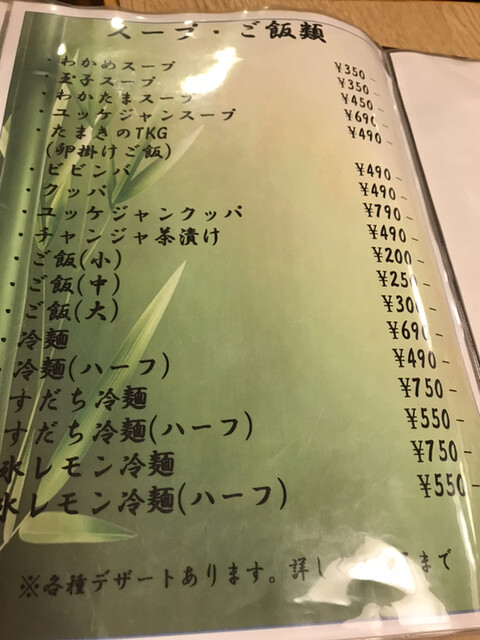 スープ・ご飯麺
・わかめスープ ¥350-
・玉子スープ ¥350-
・わかたまスープ ¥450-
・ユッケジャンスープ ¥690-
・たまきのTKG ¥490-
(卵掛けご飯)
・ビビンバ ¥490-
・クッパ ¥490-
・ユッケジャンクッパ ¥790-
・チャンジャ茶漬け ¥490-
・ご飯(小) ¥200-
・ご飯(中) ¥250-
・ご飯(大) ¥300-
・冷麺 ¥690-
・冷麺(ハーフ) ¥490-
すだち冷麺 ¥750-
すだち冷麺(ハーフ) ¥550-
氷レモン冷麺 ¥750-
氷レモン冷麺(ハーフ) ¥550-
※各種デザートあります。詳し まで